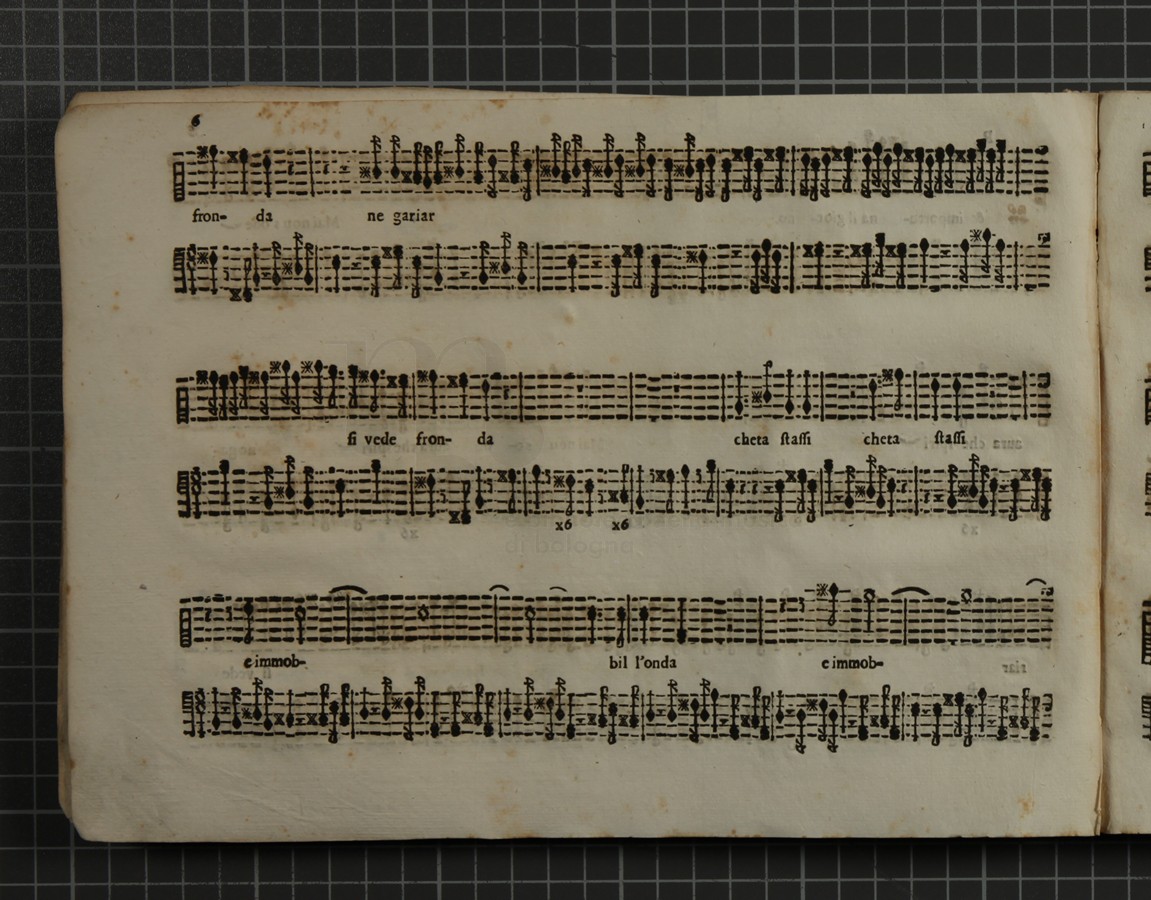 6
fron- da ne gariar
ſi vede fron- da cheta ſtaſſi cheta ſtaſſi
x6 x6
e immob- bil l'onda e immob-